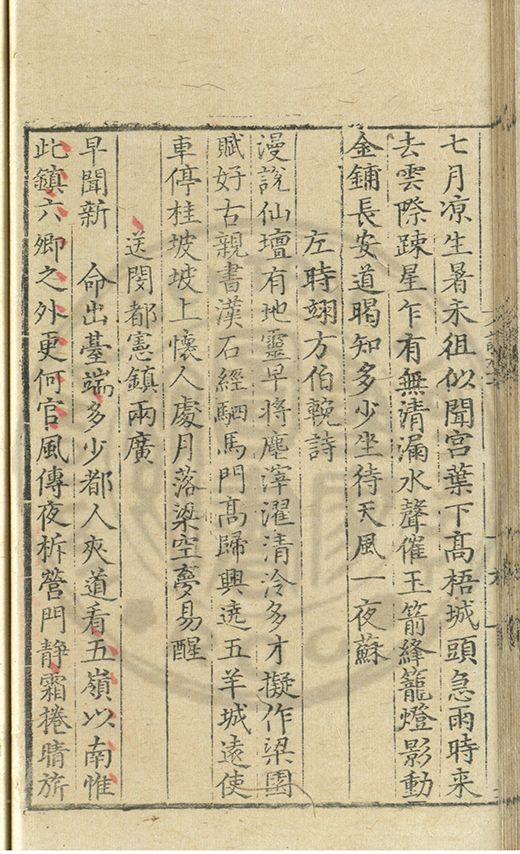 七月凉生暑未徂似聞宮葉下高梧城頭急雨時来
去雲際踈星乍有無清漏水聲催玉箭絳籠燈影動
金鏞長安道暍知多少坐待天風一夜蘇
左時翊方伯輓詩
漫說仙壇有地靈早將塵滓濯清泠多才擬作梁園
賦好古親書漢石經駟馬門高歸興遶五羊城遠使
車停桂坡坡上懷人處月落梁空夢易醒
送閔都憲鎮兩廣
早聞新　命出臺端多少都人夾道看五嶺以南惟
此鎮六卿之外更何官風傳夜柝營門静霜捲晴旂